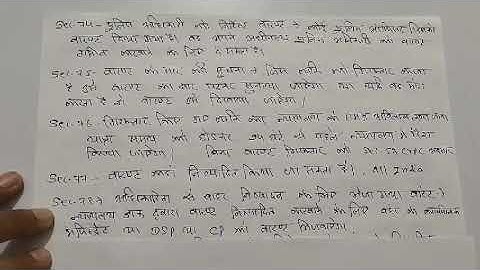 Sec-74- पुलिस अधिकारी को निर्देशित वारण्ट → कोई पुलिस अधिकारी जिसको
वारण्ट दिया गया है। वह अपने अधीनस्थ पुलिस अधिकारी को वारण्ट
तामील करवाने के लिए दे सकता है।
Sec-75- वारण्ट के सार की सूचना → जिस व्यक्ति को गिरफ्तार करना
है उसे वारण्ट का सार पढ़कर सुनाया जायेगा यदि वह
करता है तो वारण्ट भी दिखाया जायेगा।
Sec-76 गिरफ्तार किये गए व्यक्ति को न्यायालय के समक्ष अविलम्ब लाया जाना
यात्रा समय को छोड़कर 24 घंटे से पहले न्यायालय में पेश
किया जायेगा। बिना वारण्ट गिरफ्तार को Sec-57 CrPC
Sec-77- वारण्ट कहाँ निष्पादित किया जा सकता है। all India
Sec-78 अधिकारिता के बाहर निष्पादन के लिए भेजा गया वारंट
न्यायालय डाक द्वारा वारण्ट निष्पादित करवाने के लिए वहां का कार्यपालक
मजिस्ट्रेट या DSP या CP को वारण्ट भिजवायेगा।